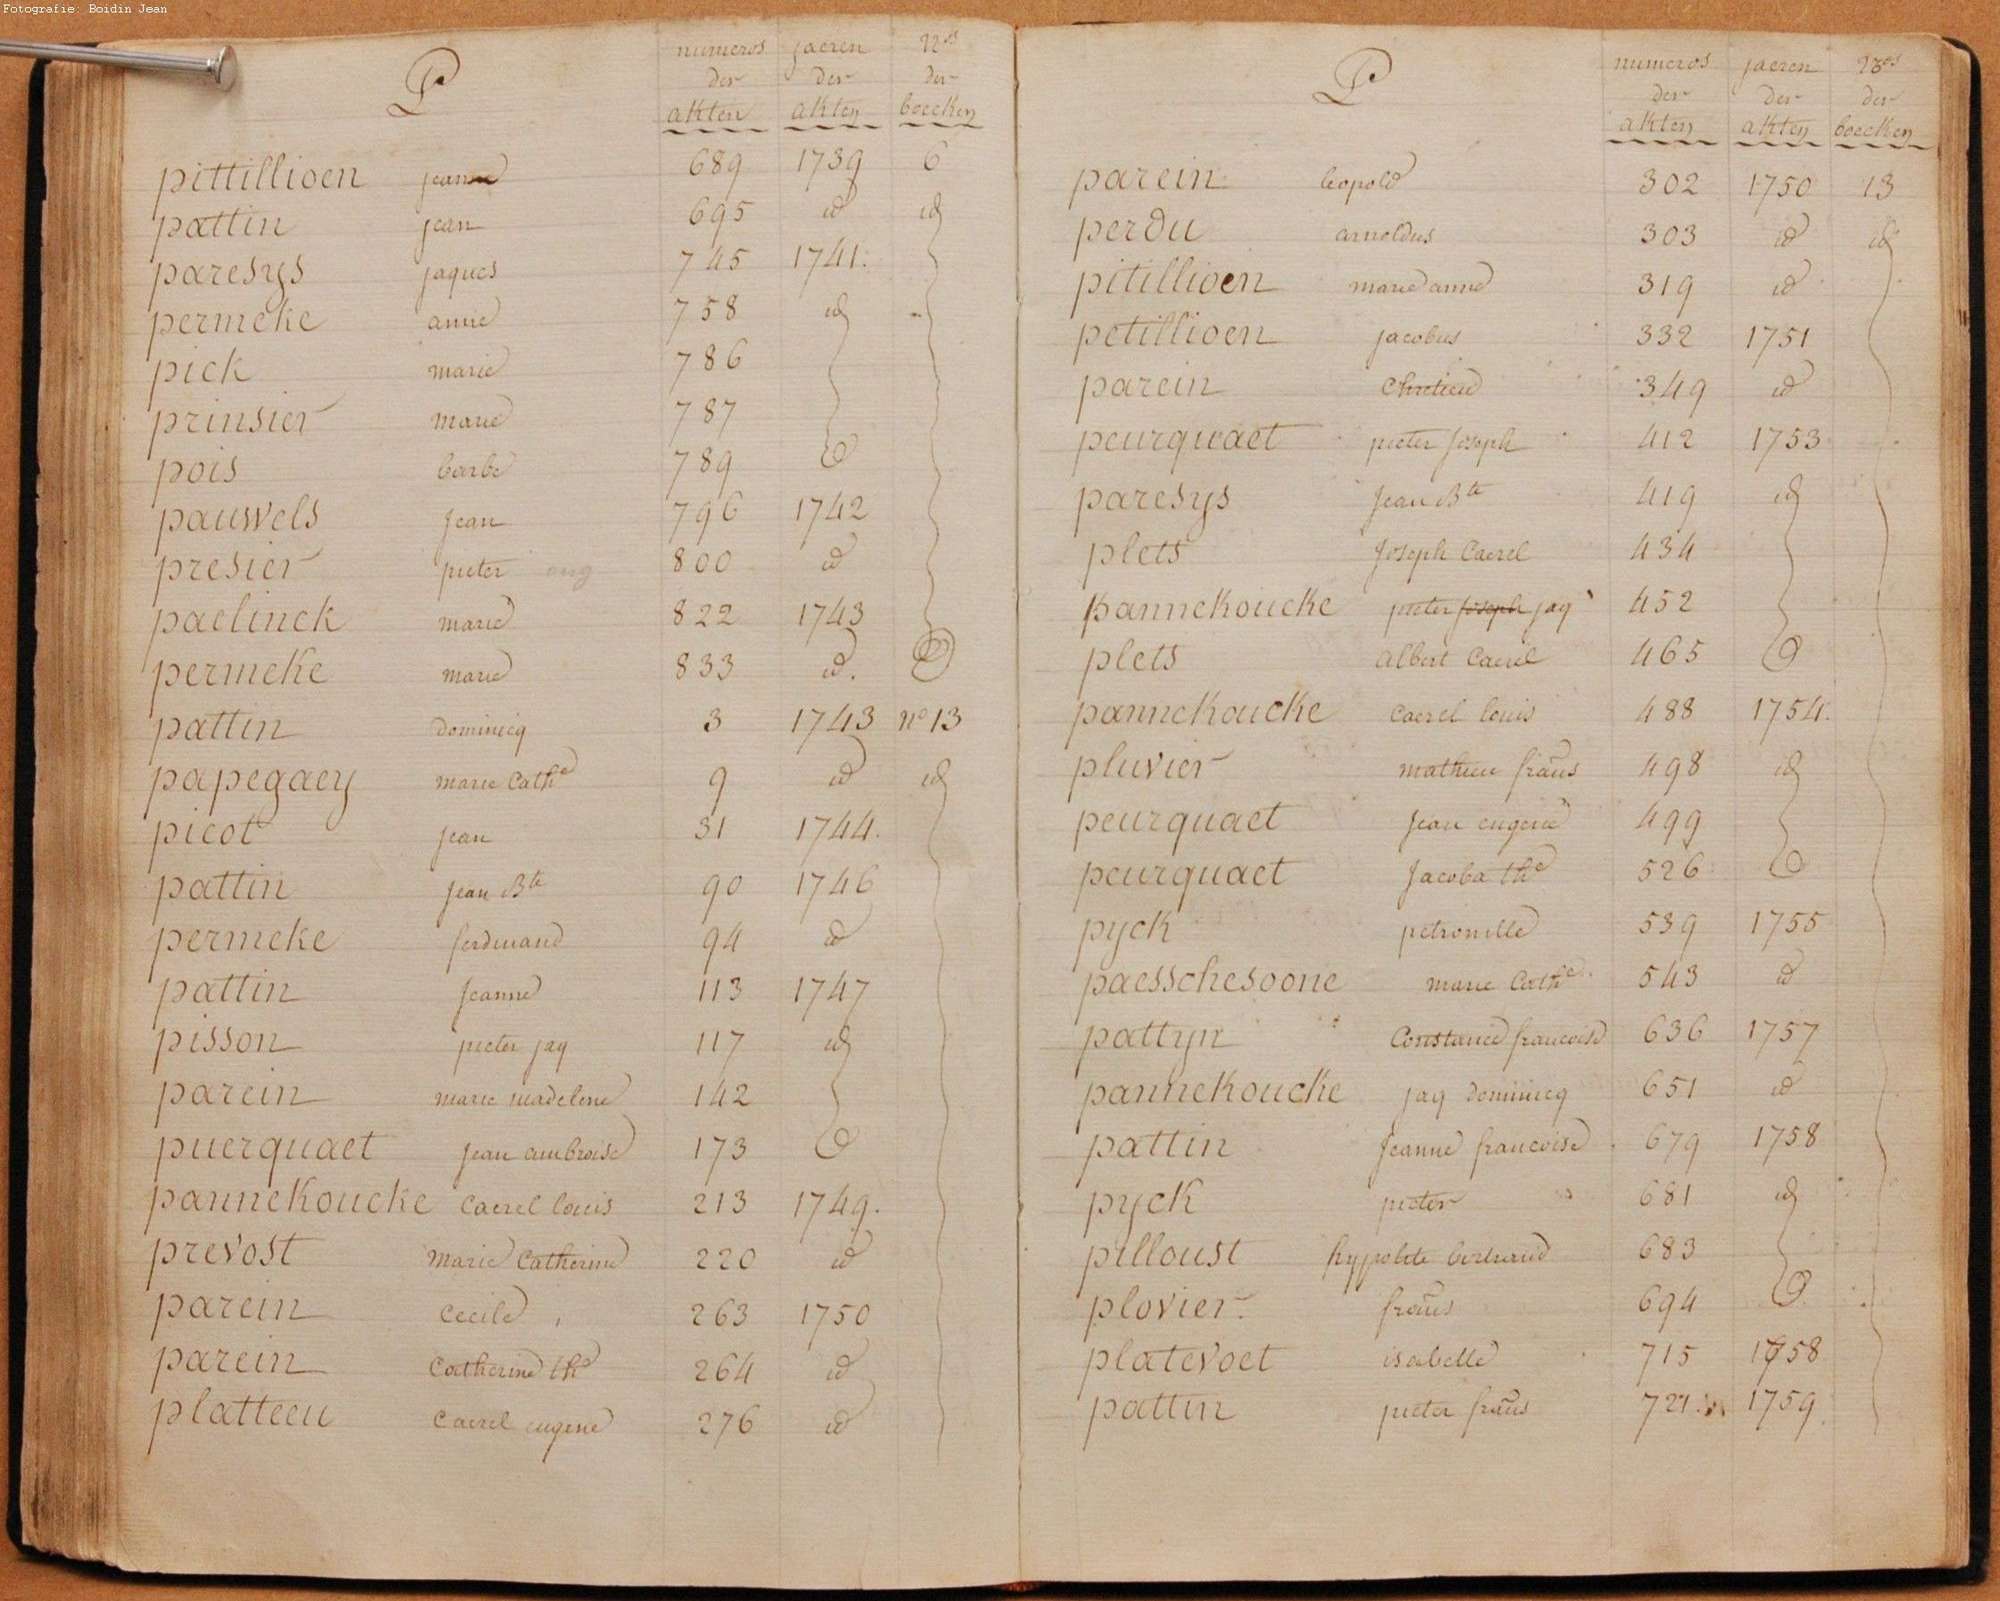 Fotografie: Boidin Jean
P numeros jaeren Nos
der der der
akten akten boecken
pittillioen jeanne 689 1739 6
pattin jean 695 id id
paresys jaques 745 1741.
permeke anne 758 id
pick marie 786
prinsier marie 787
pois barbe 789
pauwels Jean 796 1742
presier pieter 800 id
paelinck marie 822 1743
permeke marie 833 id.
pattin dominicq 3 1743 no 13
papegaey marie Cathe 9 id id
picot jean 31 1744.
pattin jean Bte 90 1746
permeke ferdinand 94 id
pattin Jeanne 113 1747
pisson pieter jaq 117 id
parein marie madelene 142
puerquaet jean ambroise 173
pannekoucke Caerel louis 213 1749.
prevost Marie Catherine 220 id
parein Cecile 263 1750
parein Catherine the 264 id
platteeu Caerel eugene 276 id
P numeros jaeren Nos
der der der
akten akten boecken
parein leopold 302 1750 13
perdu arnoldus 303 id id
pitillioen marie anne 319 id
petillioen jacobus 332 1751
parein Chretien 349 id
peurquaet pieter Joseph 412 1753
paresys Jean Bte 419 id
plets Joseph Caerel 434
pannekoucke pieter Joseph jaq 452
plets albert Caerel 465
pannekoucke Caerel louis 488 1754.
pluvier mathieu frans 498 id
peurquaet Jean eugene 499
peurquaet Jacoba the 526
pyck petronille 539 1755
paesschesoone marie Cathe. 543 id
pattyn Constance francoise 636 1757
pannekoucke jaq Dominicq 651 id
pattin Jeanne francoise 679 1758
pyck pieter 681 id
pilloust hypolite bertrand 683
plovier. frans 694
platevoet isabelle 715 1758
pattin pieter frans 721 1759.